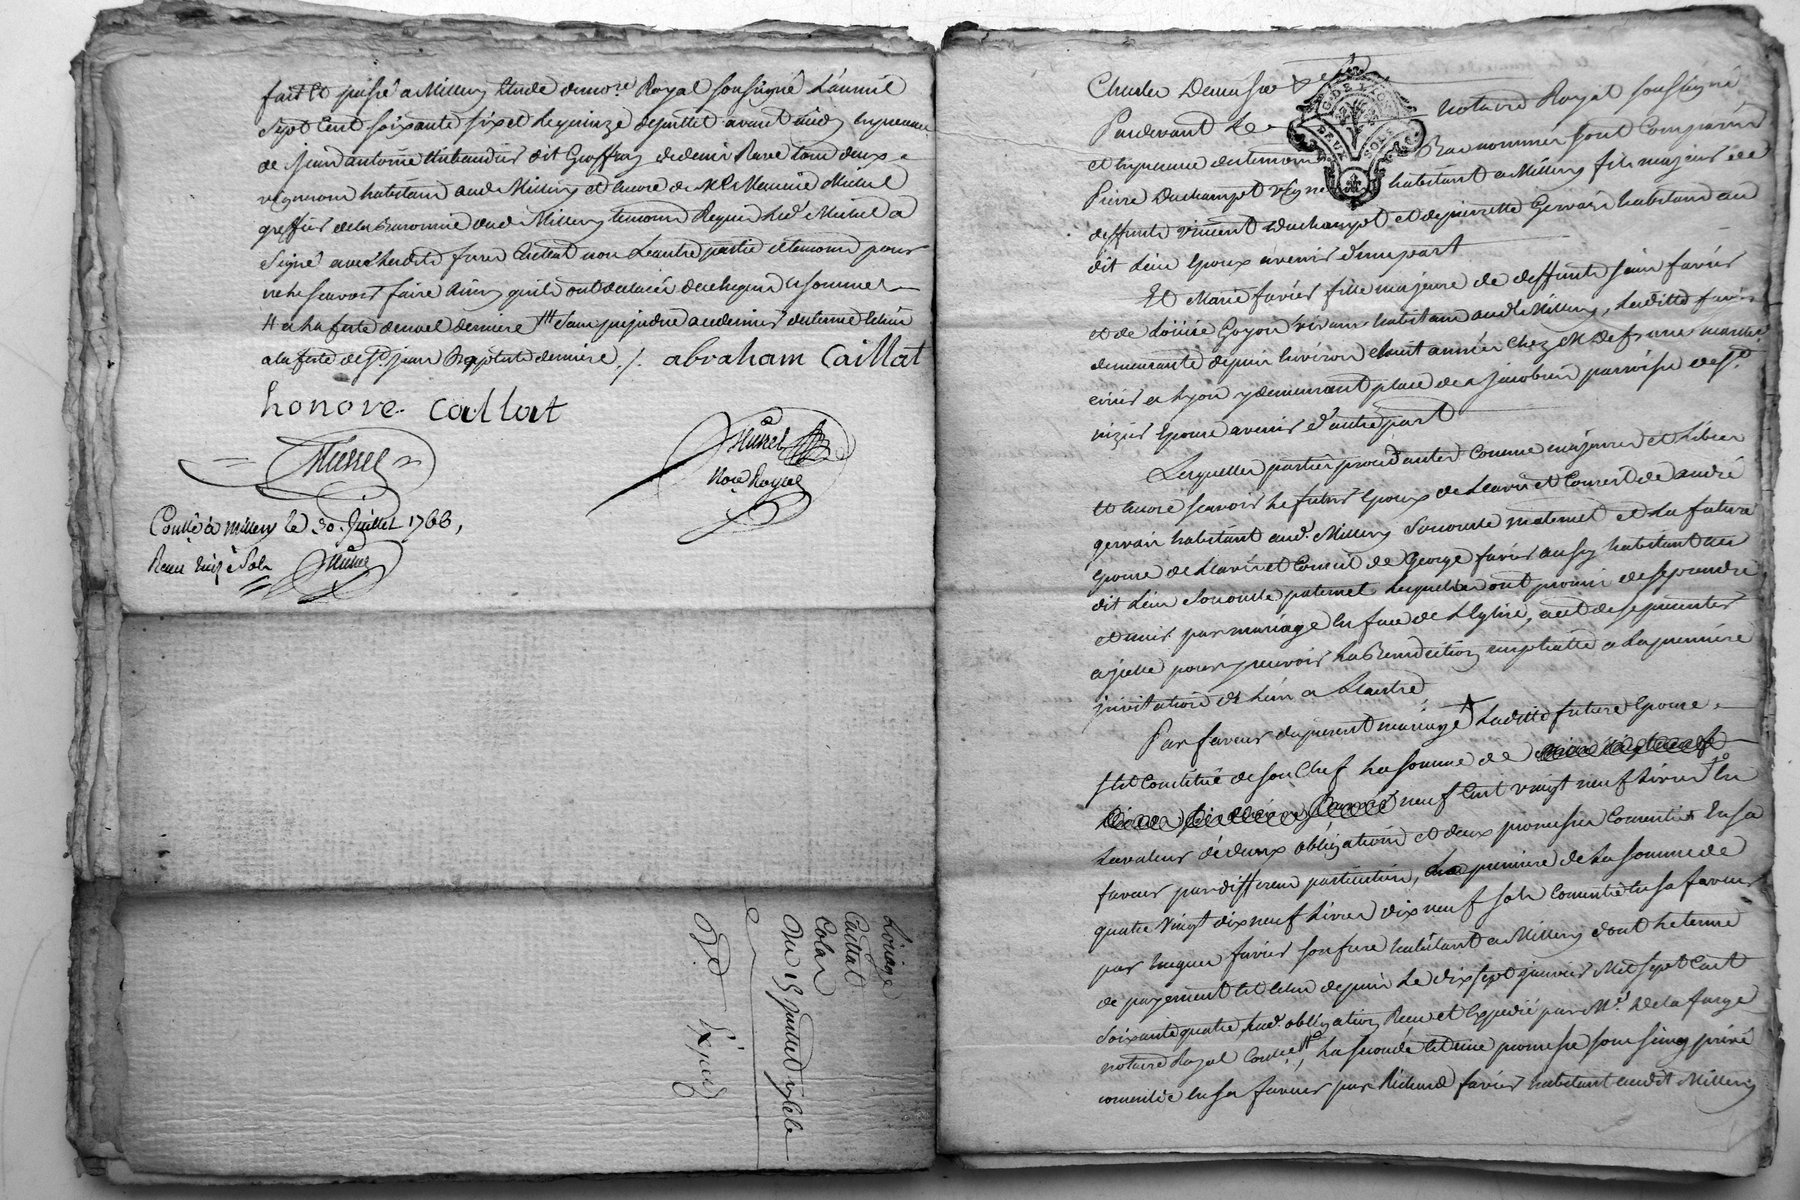 fait et passé a Millery Etude du no.re Royal soussigné L'an mil
sept cent soixante six et le quinze Juillet avant midy En presence
de Jean antoine dit Geoffray et de denis Ravet tous deux
vignerons habitans aud. Millery et encore de M.e Maurice Michel
greffier de la Baronnie dud. Millery temoins Requis led. Michel a
signé avec lesdits frere Caillat non L'autre partie et temoins pour
ne le scavoir faire ainsy qu'ils ont declaré de ce Requis et sommés
# a la feste de noel derniere # sans prejudice au dernier du terme Echu
a la feste de St. jean Baptiste derniere ./. abraham Caillat
honore callat
Michel
Michel
No.re Royal
Conllé a millery le 30. Juillet 1766,
Reçu treize sols
Michel
Loüage
Caillat
Colas
Du 15 Juillet 1766
Exped
Pardevant Le notaire Royal soussigné
et En presence des temoins Bas nommés sont Comparus
Pierre Duchampt vigneron habitant a Millery fils majeur de
deffunt vincent Duchampt et de pierrette Gervais habitans au
dit Lieu Epoux avenir d'une part
Et Marie favier fille majeure de deffunt jean favier
et de Loüise Goyon vivans habitans aud. Millery, Ladite favier
demeurante depuis Environ huit années chez M. De
a Lyon y demeurant place des Jacobins parroisse de St.
nizier Epouse avenir d'autre part
Lesquelles parties procedantes Comme majeures et Libres
et encore scavoir Le futur Epoux de L'avis et Conseil de andré
gervais habitant aud. Millery son oncle maternel et La future
Epouse de L'avis et Conseil de George favier aussy habitant au
dit Lieu son oncle paternel Lesquelles ont promis de se prendre
et unir par mariage En face de L'Eglise, a cet Effet de se presenter
a jcelle pour y recevoir La Benediction nuptialle a La premiere
jnvitation de L'un a L'autre
Par faveur du present mariage Ladite future Epouse
s'est Constitué de son Chef La somme de
neuf Cent vingt neuf Livres En
La valeur de deux obligations et deux promesses Consenties En sa
faveur par differens particuliers, La premiere de La somme de
quatre vingt dix neuf Livres dix neuf sols Consentie En sa faveur
par Jacques favier son frere habitant a Millery dont Le terme
de payement est Echu depuis Le dix sept janvier Mil sept Cent
soixante quatre, Lad. obligation Reçu et Expedié par M.e Delafarge
notaire Royal, La seconde est une promesse sous seing privé
consentie En sa faveur par Richard favier habitant audit Millery